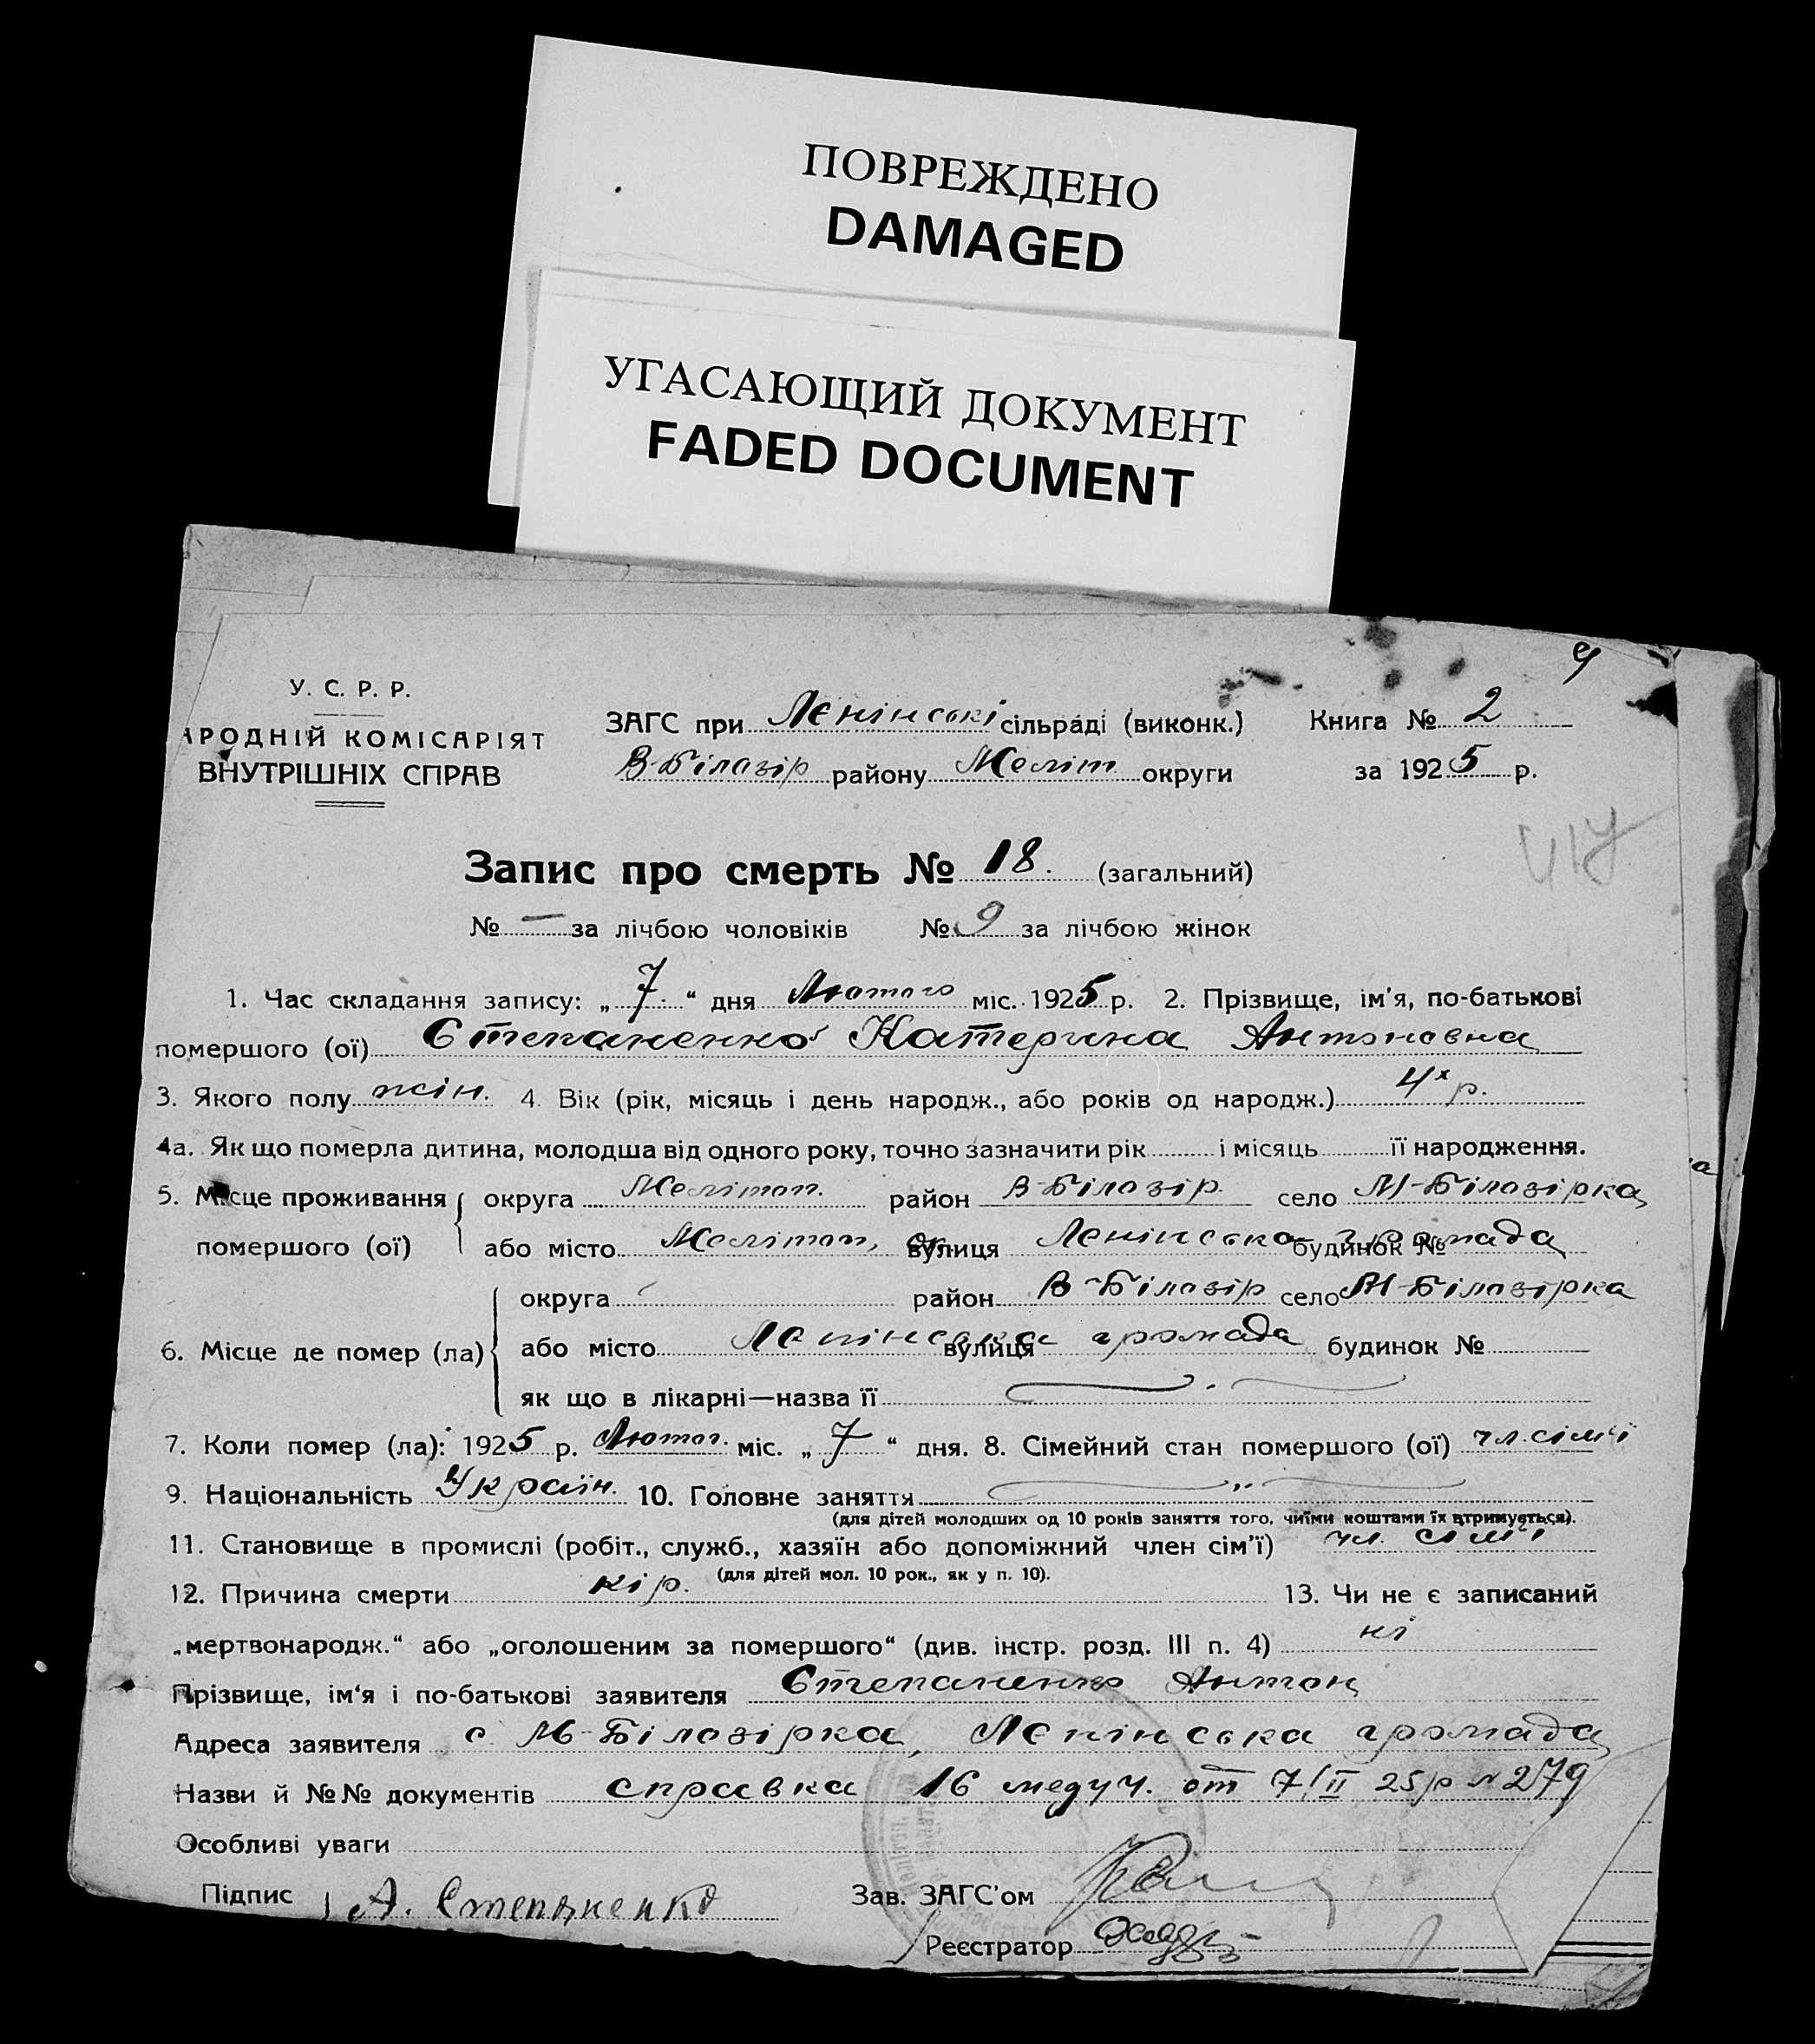 ПОВРЕЖДЕНО
DAMAGED
УГАСАЮЩИЙ ДОКУМЕНТ
FADED DOCUMENT
У. С. Р. Р.
АРОДНІЙ КОМІСАРІЯТ
ВНУТРІШНІХ СПРАВ
ЗАГС при Ленінські сільраді (виконк.)
В-Білозір району Меліт округи
Книга № 2
за 1925 р.
417
Запис про смерть № 18. (загальний)
№ — за лічбою чоловіків № 9 за лічбою жінок
1. Час складання запису: „ 7. “ дня Лютого міс. 1925 р. 2. Прізвище, ім'я, по-батькові
помершого (ої) Степаненко Катерина Антоновна
3. Якого полу жін. 4. Вік (рік, місяць і день народж., або років од народж.) 4х р.
4а. Як що померла дитина, молодша від одного року, точно зазначити рік і місяць її народження.
5. Місце проживання округа Мелітоп. район В-Білозір. село М-Білозірка
помершого (ої) або місто Мелітоп, ок. вулиця Ленінська громада будинок №
округа район В-Білозір село М-Білозірка
6. Місце де помер (ла) або місто Ленінська вулиця громада будинок №
як що в лікарні—назва її
7. Коли помер (ла): 1925 р. Лютог. міс. „ 7 “ дня. 8. Сімейний стан помершого (ої) чл. сім'ї
9. Національність Україн. 10. Головне заняття „
(для дітей молодших од 10 років заняття того, чиїми коштами їх втримується).
11. Становище в промислі (робіт., служб., хазяїн або допоміжний член сім'ї) чл. сім'ї
(для дітей мол. 10 рок., як у п. 10).
12. Причина смерти кір. 13. Чи не є записаний
„мертвонародж.“ або „оголошеним за помершого“ (див. інстр. розд. III п. 4) ні
Прізвище, ім'я і по-батькові заявителя Степаненко Антон
Адреса заявителя с. М-Білозірка, Ленінська громада
Назви й №№ документів справка 16 медуч. от 7/II 25р № 279
Особливі уваги
Підпис А. Степаненко Зав. ЗАГС'ом
Реєстратор